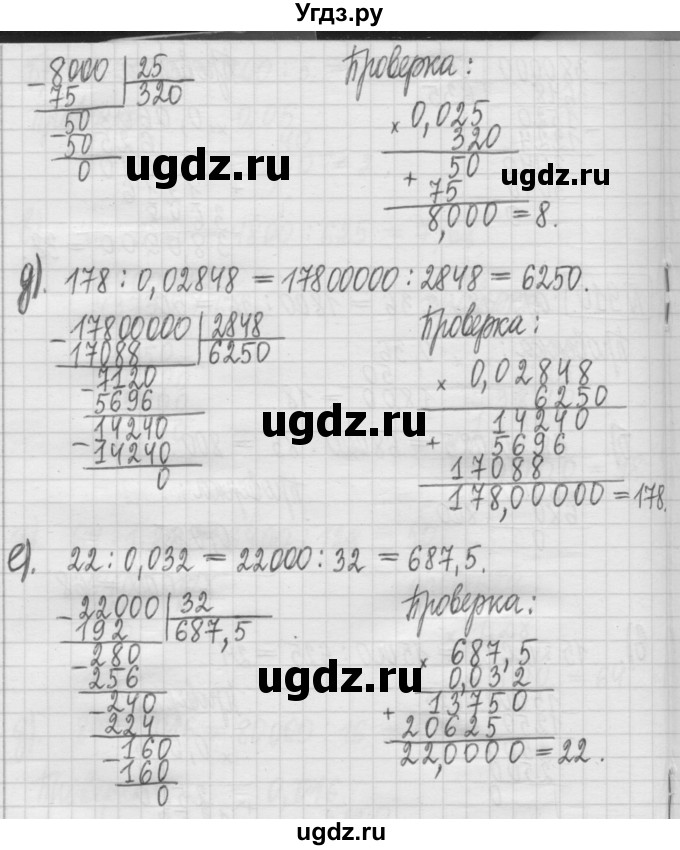 Угдз.ру
- 8000 | 25
75 | 320
- 50
50
0
Проверка:
× 0,025
320
+ 50
75
8,000 = 8.
ugdz.ru
ugdz.ru
д). 178 : 0,02848 = 17800000 : 2848 = 6250.
- 17800000 | 2848
17088 | 6250
- 7120
5696
- 14240
14240
0
Проверка:
× 0,02848
6250
+ 14240
5696
17088
178,00000 = 178.
ugdz.ru
е). 22 : 0,032 = 22000 : 32 = 687,5.
- 22000 | 32
192 | 687,5
- 280
256
- 240
224
- 160
160
0
Проверка:
× 687,5
0,032
+ 13750
20625
22,0000 = 22.
ugdz.ru
ugdz.ru
ugdz.ru